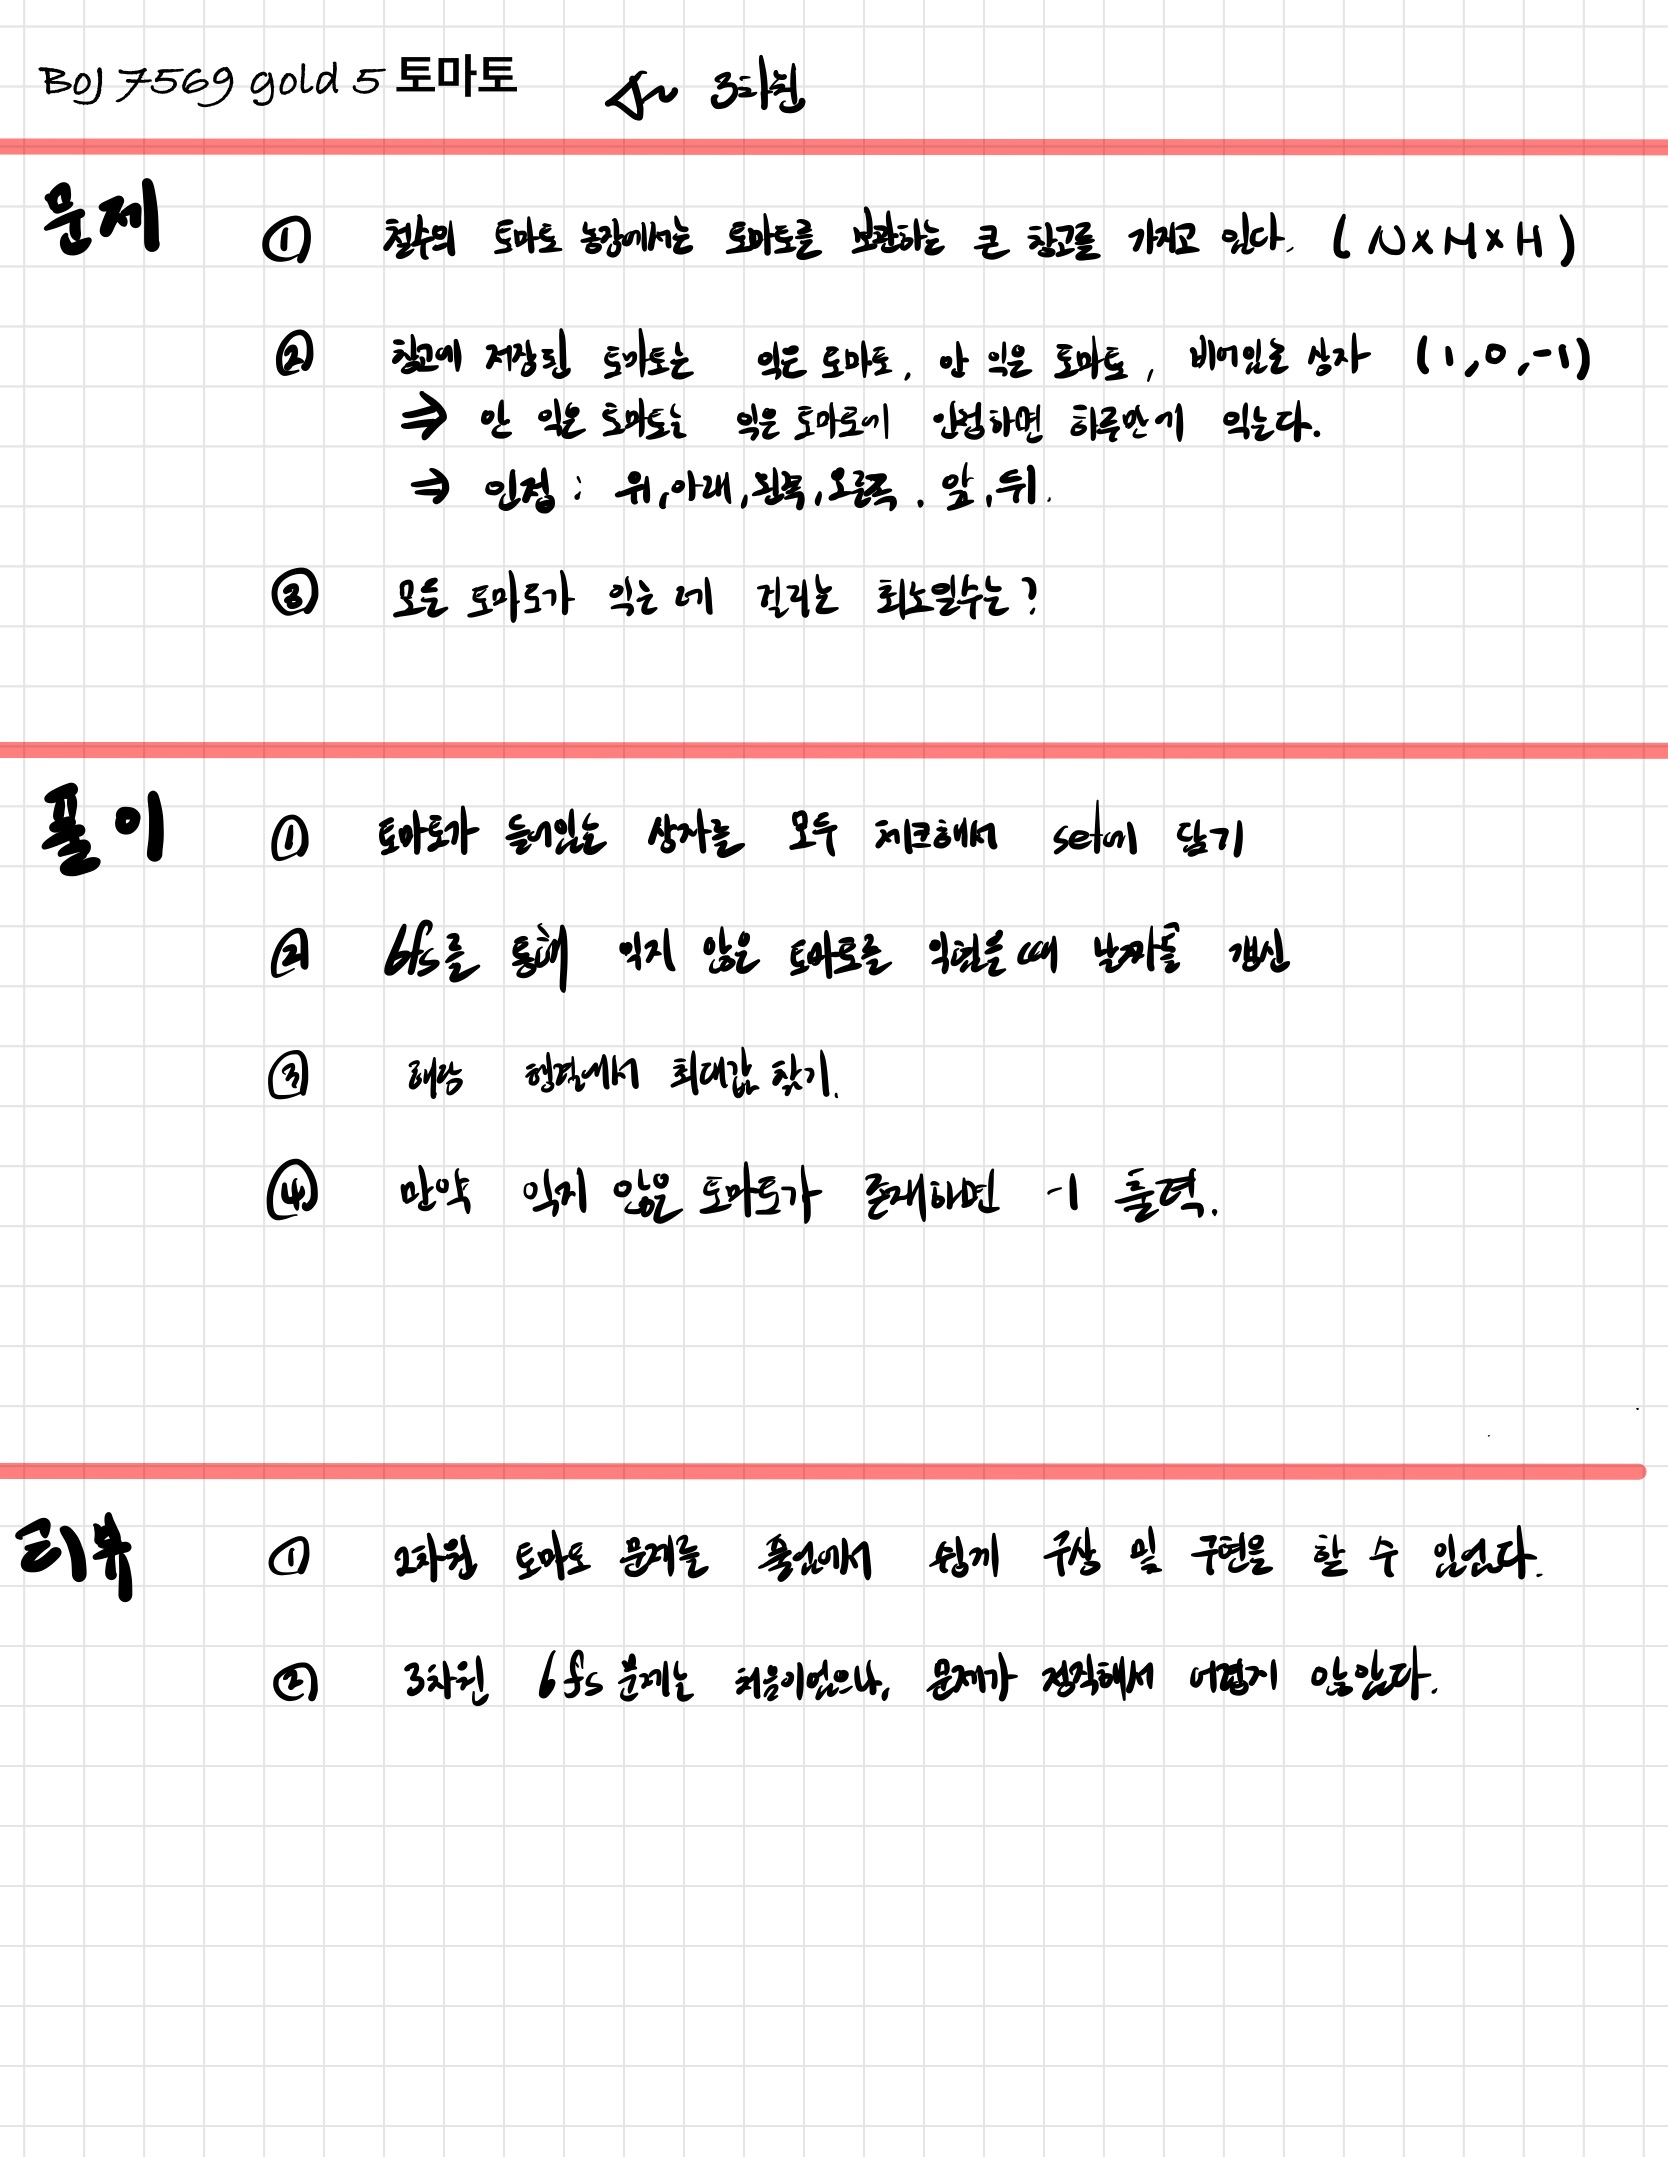 BOJ 7569 gold 5 토마토 3차원
문제 ① 철수의 토마토 농장에서는 토마토를 보관하는 큰 창고를 가지고 있다. (N×M×H)
② 창고에 저장된 토마토는 익은 토마토, 안 익은 토마토, 비어있는 상자 (1,0,-1)
⇒ 안 익은 토마토는 익은 토마토에 인접하면 하루만에 익는다.
⇒ 인접 : 위,아래,왼쪽,오른쪽,앞,뒤.
③ 모든 토마토가 익는 데 걸리는 최소일수는?
풀이 ① 토마토가 들어있는 상자를 모두 체크해서 set에 담기
② bfs를 통해 익지 않은 토마토를 익혔을때 날짜들 갱신
③ 해당 행렬에서 최대값 찾기.
④ 만약 익지 않은 토마토가 존재하면 -1 출력.
리뷰 ① 2차원 토마토 문제를 풀었어서 쉽게 구상 및 구현을 할 수 있었다.
② 3차원 bfs 문제는 처음이었으나, 문제가 정직해서 어렵지 않았다.